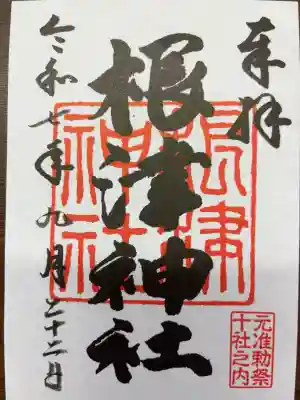 奉拝
根津神社
令和七年九月二十二日
根津
神社
元准勅祭
十社之内